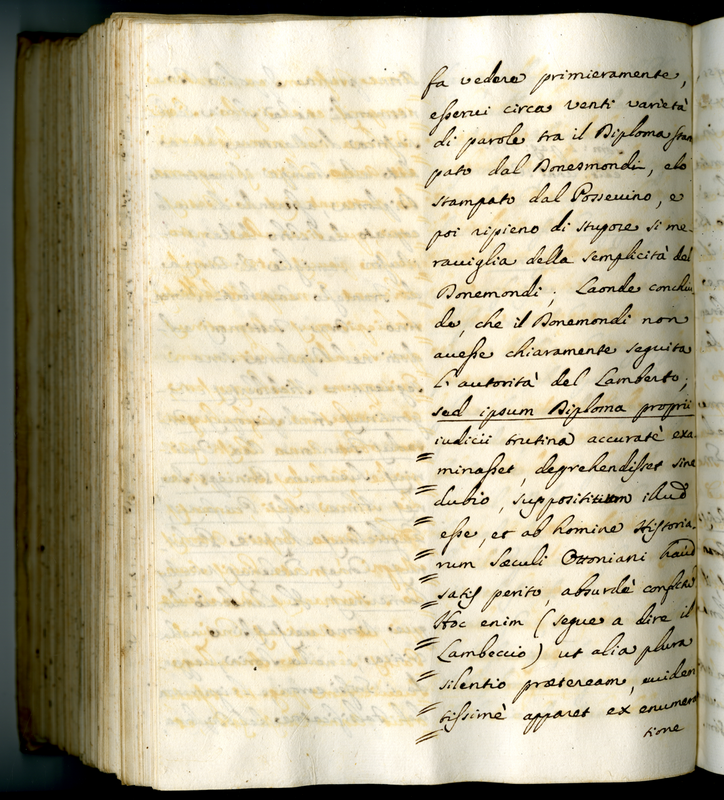 fa vedere primieramente,
esservi circa venti varietà
di parole tra il Diploma stam
pato dal Bonesmondi, e lo
stampato dal Possevino, e
poi ripieno di stupore si me-
raviglia della semplicità del
Bonemondi; Laonde conchiu-
de, che il Bonemondi non
avesse chiaramente seguita
l'autorità del Lamberto;
sed ipsum Diploma proprii
iudicii trutina accuratè exa-
minasset, deprehendisset sine
dubio, supposititium illud
esse, et ab homine Historia-
rum sæculi Ottoniani haud
satis perito, absurdè
Hoc enim (segue a dire il
Lambeccio) ut alia plura
silentio præteream, eviden
tissimè apparet ex enumera
tione